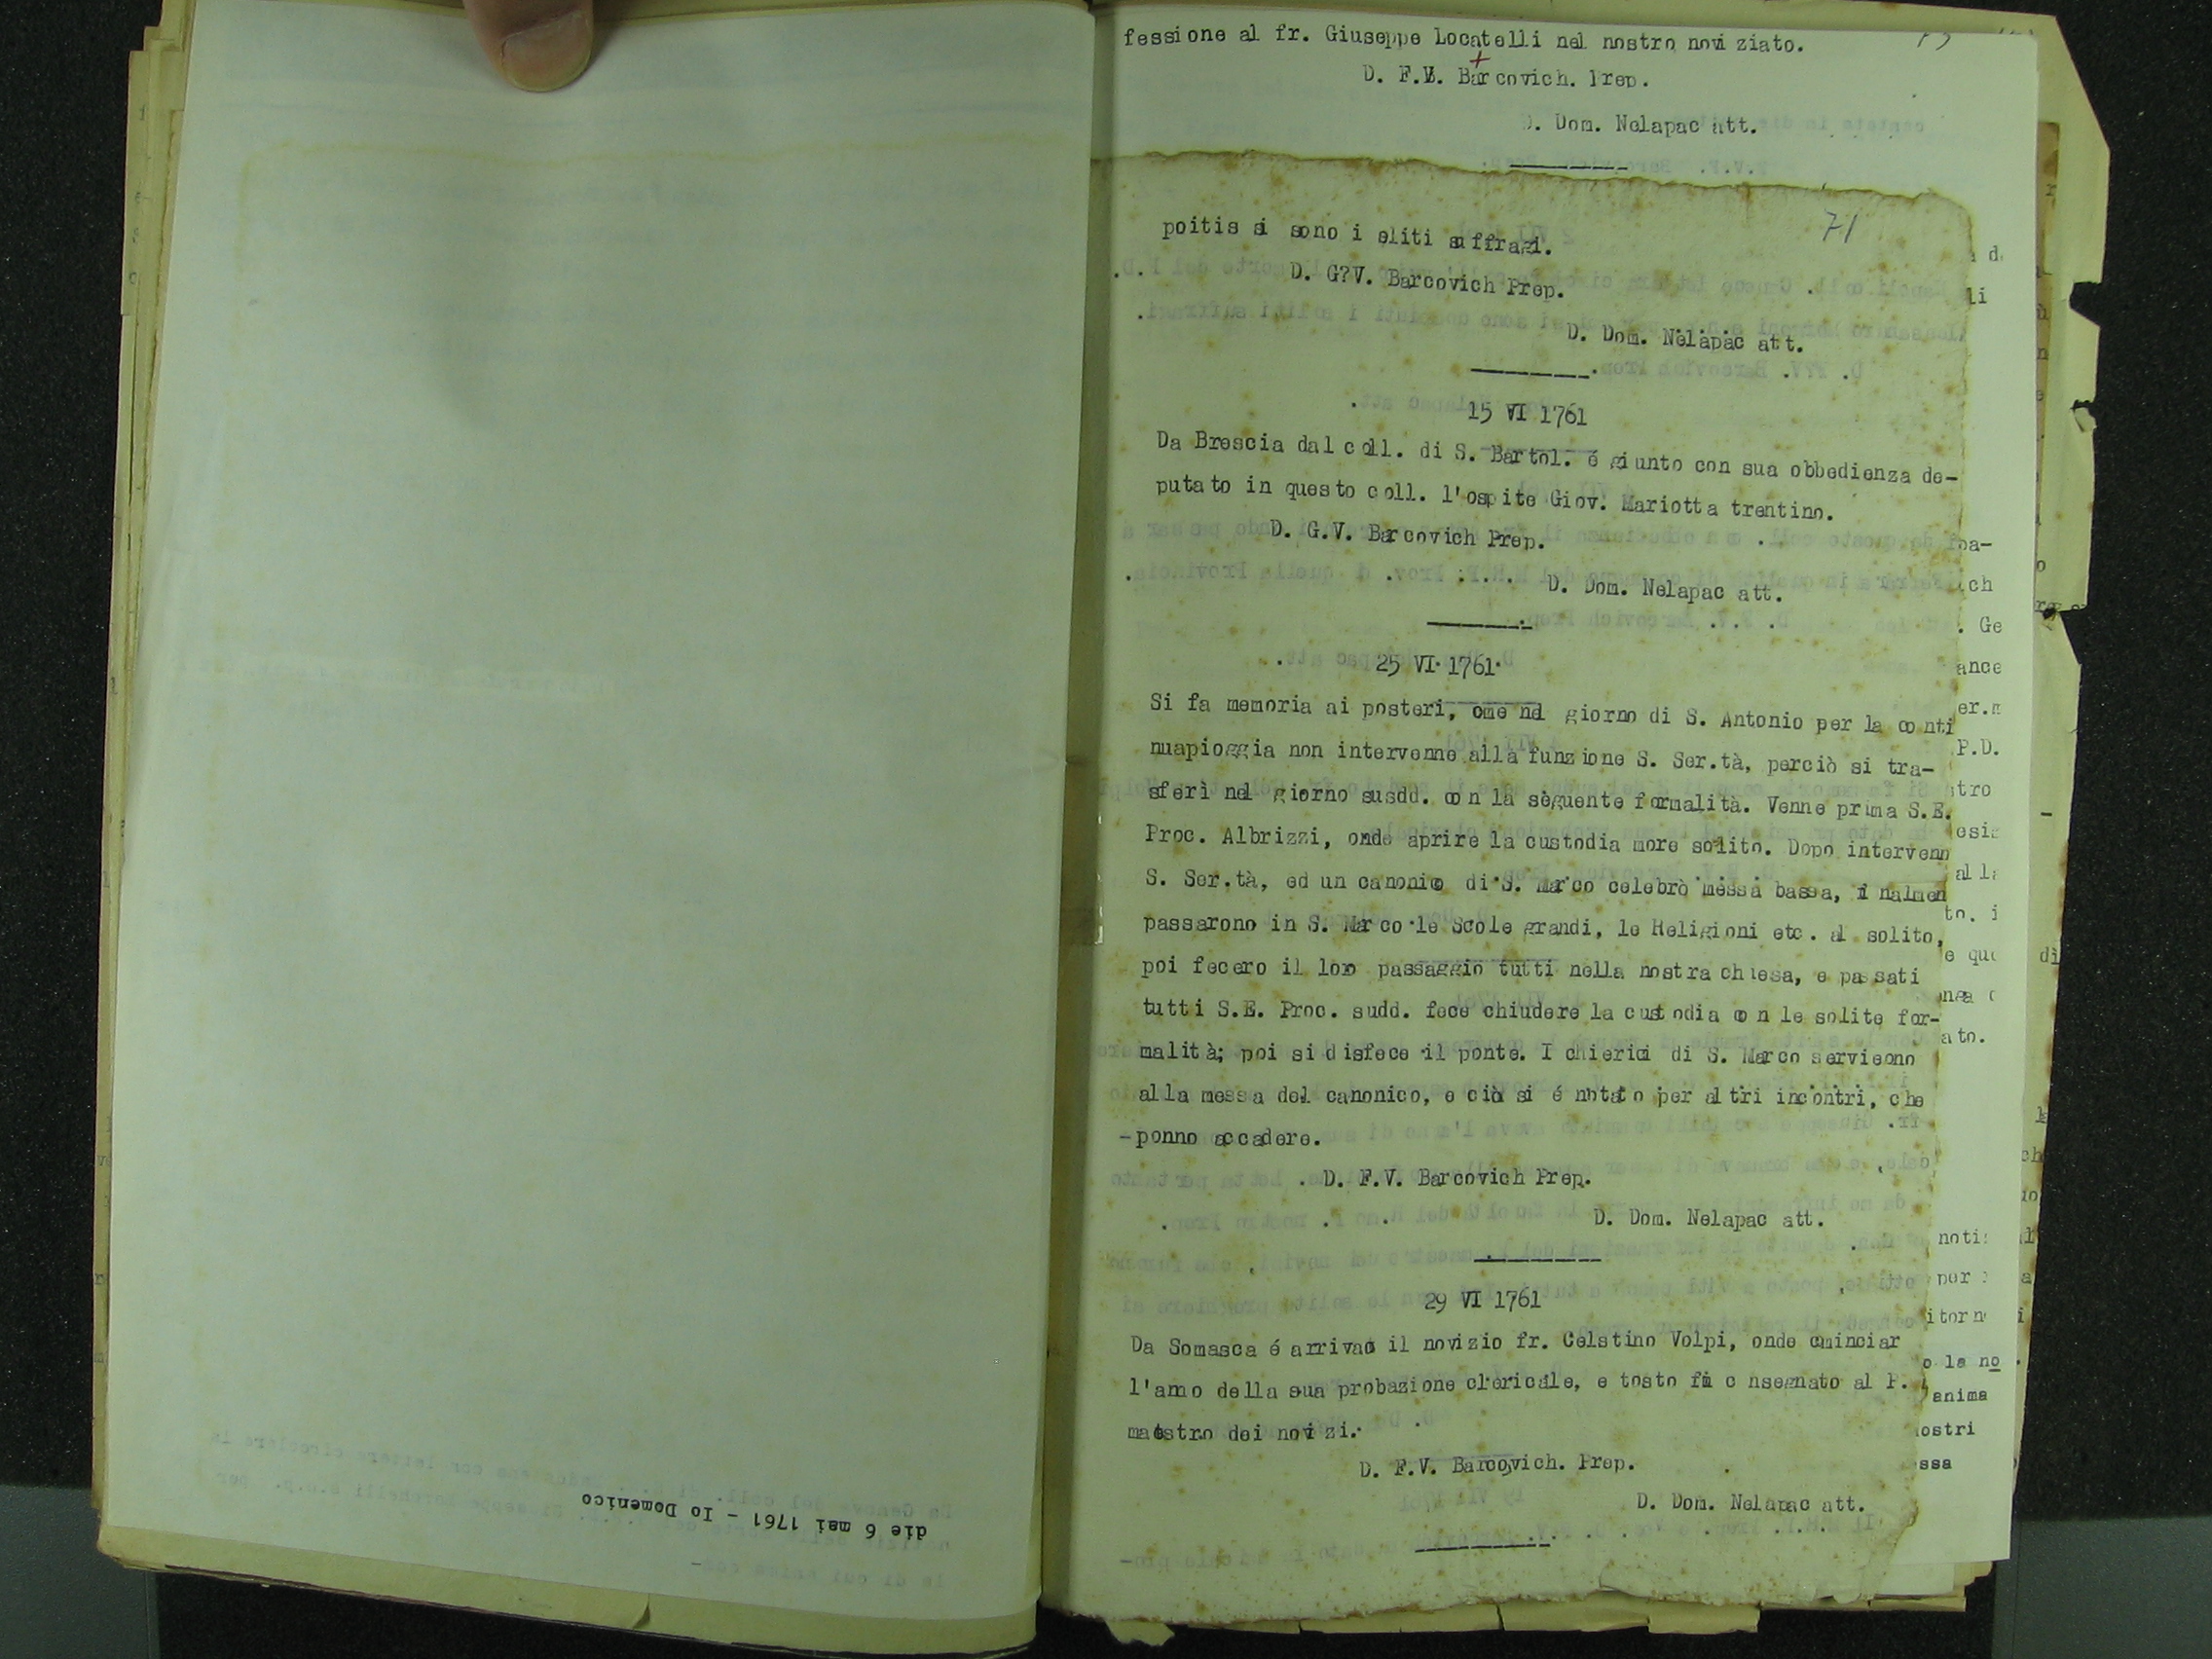 fessione al fr. Giuseppe Locatelli nel nostro novi ziato.
Barcovich. Prep.
D. Dom. Nelapac att.
71
poitis si sono i sliti suffragi.
D. G?V. Barcovich Prep.
D. Dom. Nelapac att.
15 VI 1761
Da Brescia dal coll. di S. Bartol. é giunto con sua obbedienza de-
putato in questo coll. l'ospite Giov. Mariotta trentino.
D. G.V. Barcovich Prep.
D. Dom. Nelapac att.
25 VI 1761
Si fa memoria ai posteri, ome nel giorno di S. Antonio per la conti
nuapioggia non intervenne alla funzione S. Ser.tà, perciò si tra-
sferì nel giorno susdd. con la sèguente formalità. Venne prima S.E.
Proc. Albrizzi, onde aprire la custodia more solito. Dopo intervenn
S. Ser.tà, ed un canonico di S. Marco celebrò messa bassa, finalmen
passarono in S. Marco le Scole grandi, le Religioni etc. al solito,
poi fecero il loro passaggio tutti nella nostra chiesa, e passati
tutti S.E. Proc. sudd. fece chiudere la custodia con le solite for-
malità; poi si disfece il ponte. I chierici di S. Marco servieono
alla messa del canonico, e ciò si é notato per altri incontri, che
-ponno accadere.
D. F.V. Barcovich Prep.
D. Dom. Nelapac att.
29 VI 1761
Da Somasca é arrivao il novizio fr. Celstino Volpi, onde cminciar
l'anno della sua probazione clericale, e tosto fù c nsegnato al P.
maestro dei novizi.
D. F.V. Barcovich. Prep.
D. Dom. Nelapac att.
die 6 mai 1761 - Io Domenico